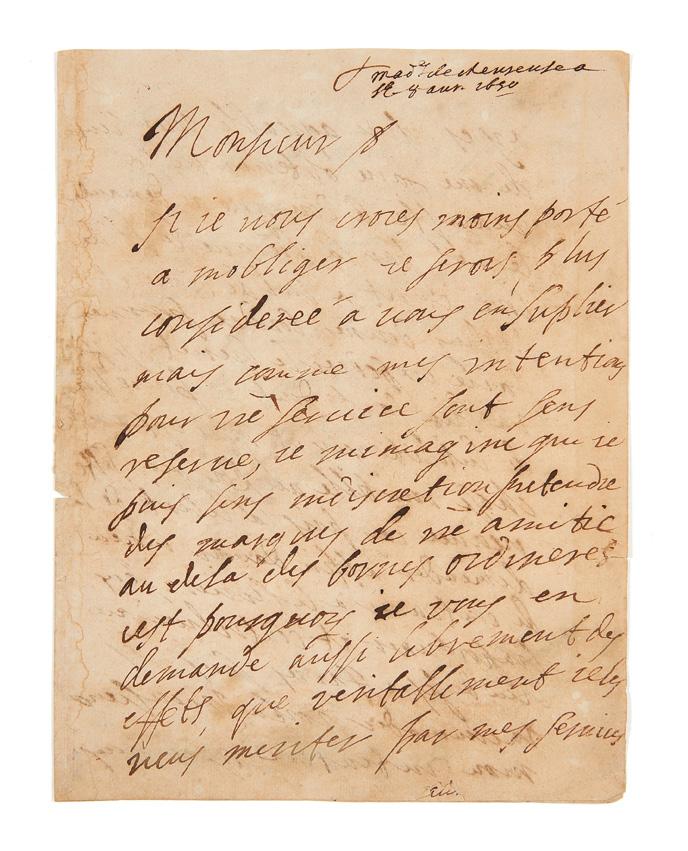 mad.e de
le 8 aur. 1650
Monsieur
Si ie vous croies moins porté
a mobliger ie serois plus
considereé a vous en suplier
mais comme mes intentions
pour vre seruice sont sens
reserue, ie mimagine que ie
puis sens indiscretion pretendre
des marques de vre amitié
au dela des bornes ordineres
cest pourquoy ie vous en
demande aussi librement des
effets, que veritallement ie les
veus meriter par mes seruices